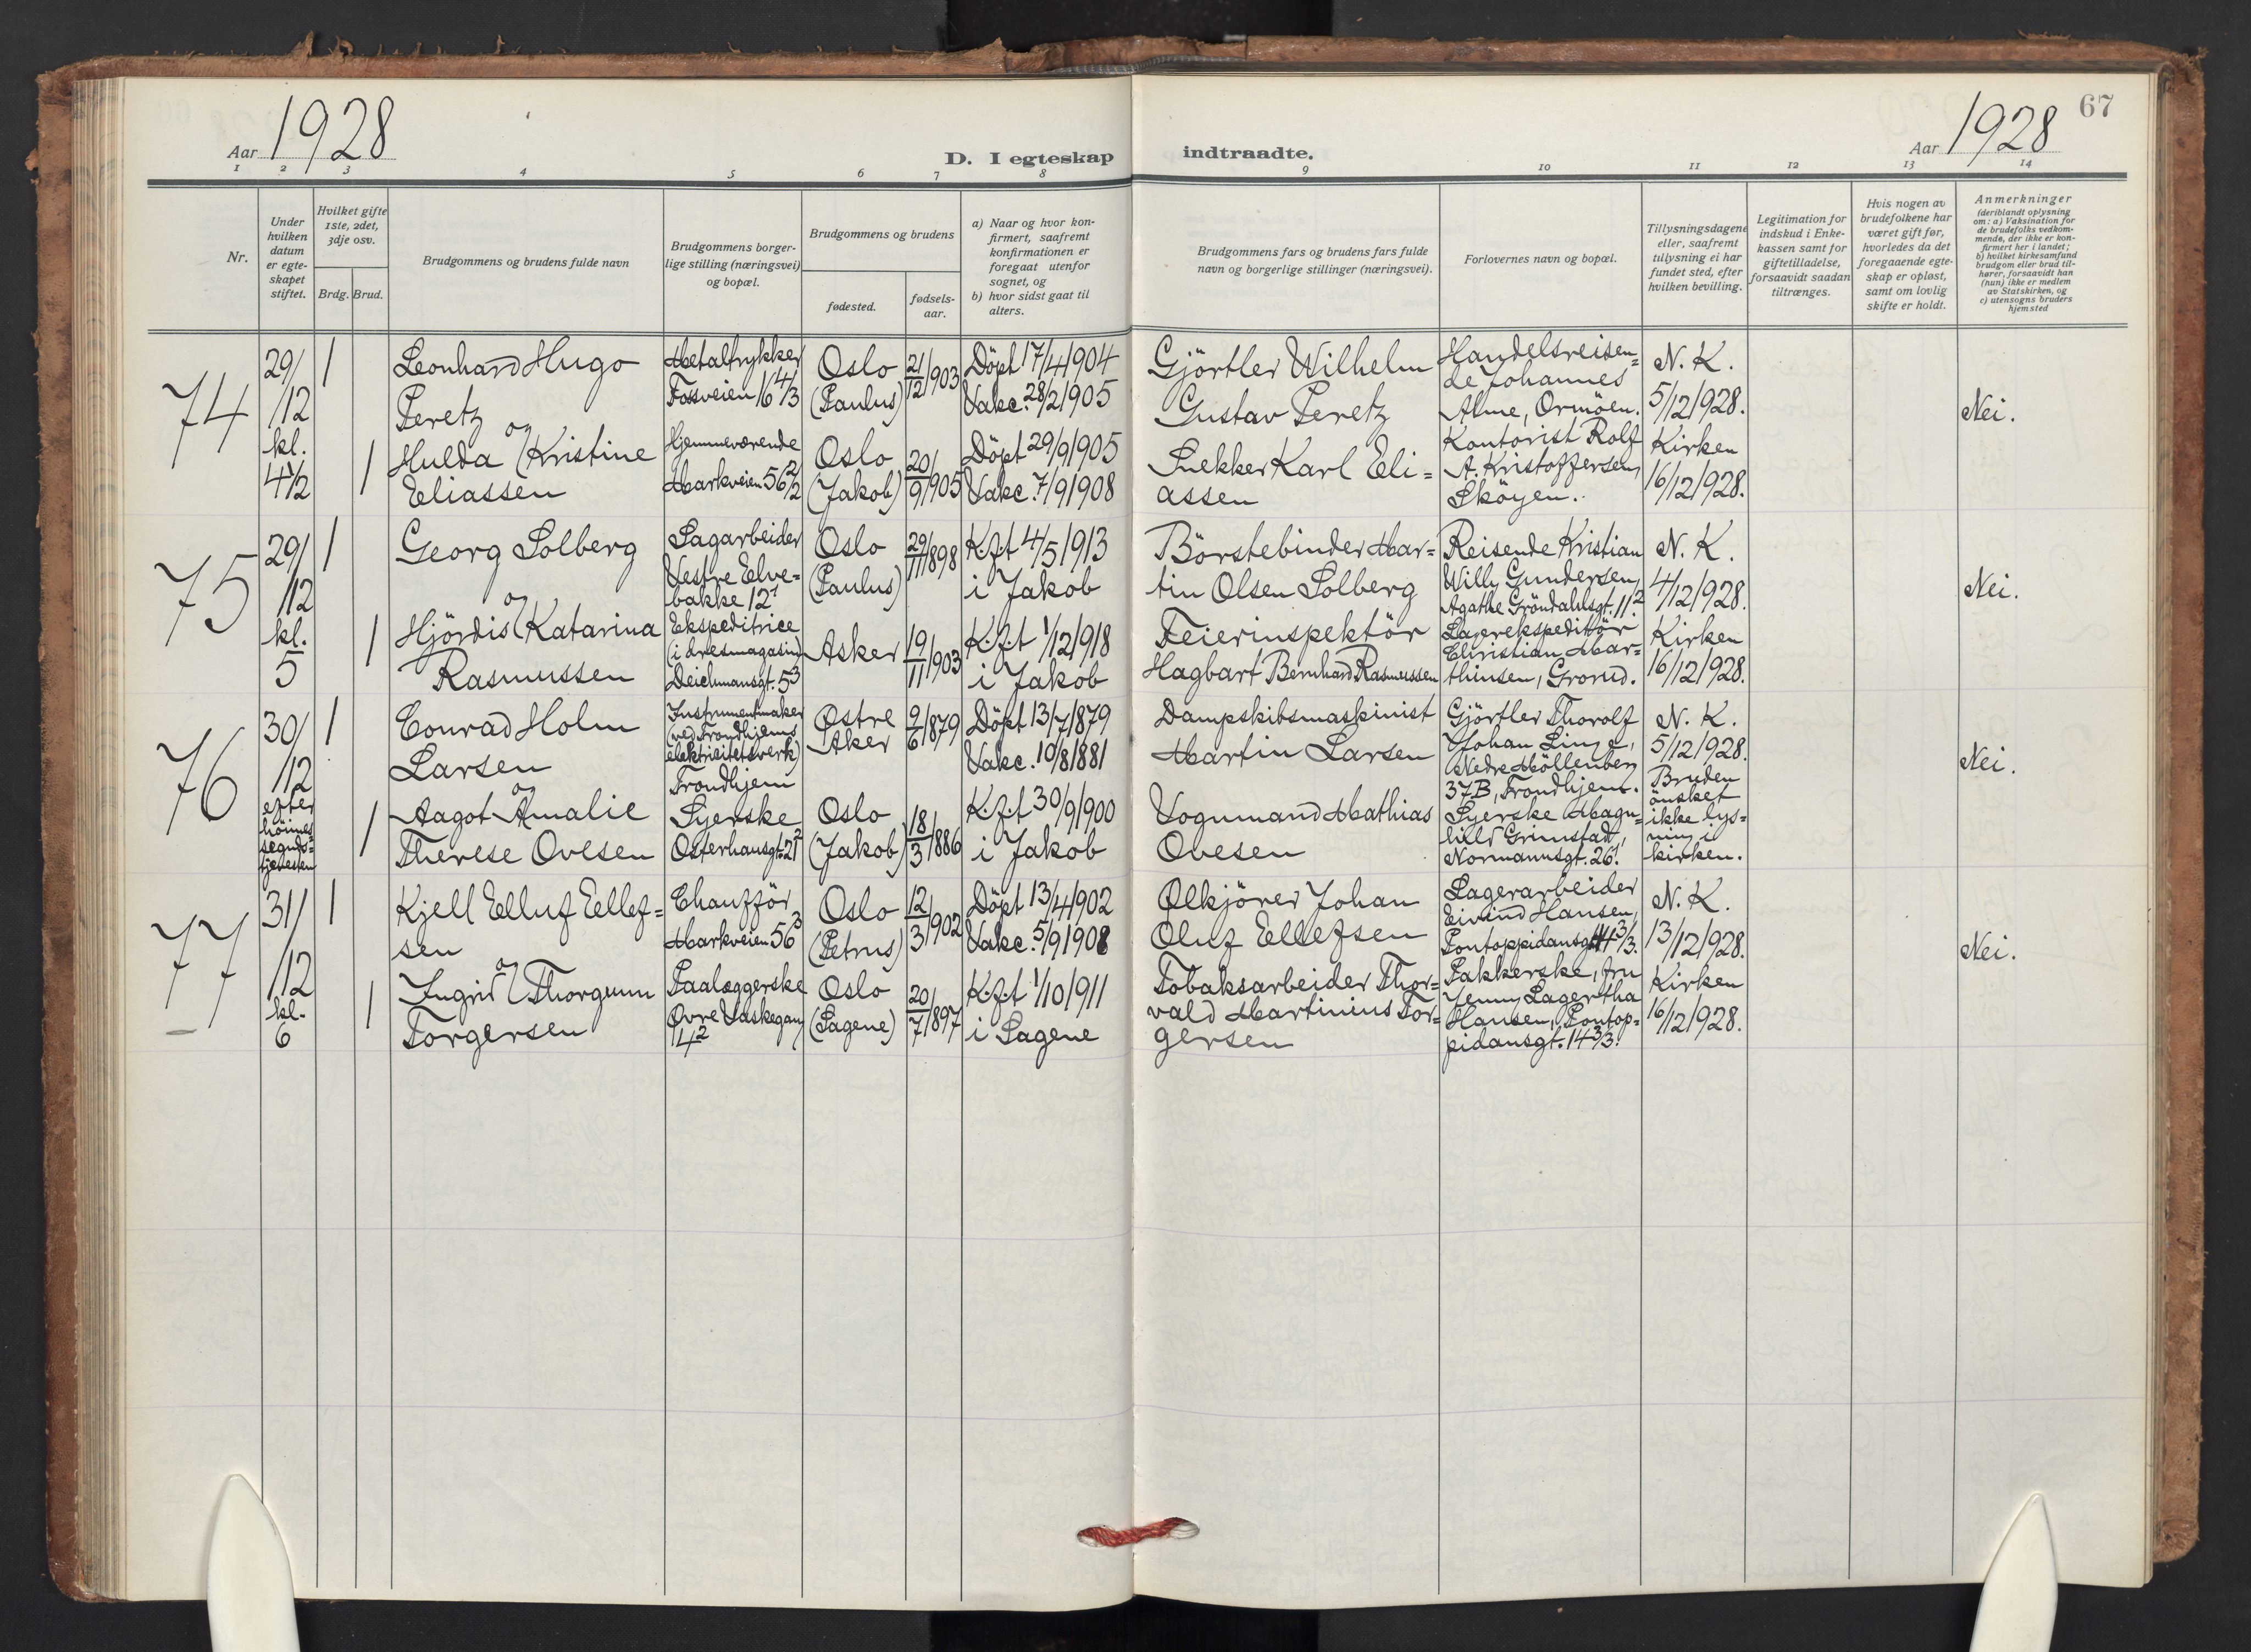 Aar 1928
D. I egteskap
indtraadte.
Aar 1928
67
1 2 3 4 5 6 7 8 9 10 11 12 13 14
Nr.
Under
hvilken
datum
er egte-
skapet
stiftet.
Hvilket gifte
1ste, 2det,
3dje osv.
Brdg. Brud.
Brudgommens og brudens fulde navn
Brudgommens borger-
lige stilling (næringsvei)
og bopæl.
Brudgommens og brudens
fødested.
fødsels-
aar.
a) Naar og hvor kon-
firmert, saafremt
konfirmationen er
foregaat utenfor
sognet, og
b) hvor sidst gaat til
alters.
Brudgommens fars og brudens fars fulde
navn og borgerlige stillinger (næringsvei).
Forlovernes navn og bopæl.
Tillysningsdagene
eller, saafremt
tillysning ei har
fundet sted, efter
hvilken bevilling.
Legitimation for
indskud i Enke-
kassen samt for
giftetilladelse,
forsaavidt saadan
tiltrænges.
Hvis nogen av
brudefolkene har
været gift før,
hvorledes da det
foregaaende egte-
skap er opløst,
samt om lovlig
skifte er holdt.
Anmerkninger
(deriblandt oplysning
om: a) Vaksination for
de brudefolks vedkom-
mende, der ikke er kon-
firmert her i landet;
b) hvilket kirkesamfund
brudgom eller brud til-
hører, forsaavidt han
(hun) ikke er medlem
av Statskirken, og
c) utensogns bruders
hjemsted
74
29/
/12
kl.
4 1/2
1
1
Leonhard Hugo
Peretz
og
Hulda Kristine
Eliassen
Metaltrykker
Fossveien 16 4/3
Hjemmeværende
Markveien 56 2/2
Oslo
(Paulus)
Oslo
(Jakob)
21/12/903
20/9/905
Döpt 17/4/904
Vakc. 28/2/905
Döpt 29/9/905
Vakc. 7/9/908
Gjörtler Wilhelm
Gustav Peretz
Snekker Karl Eli=
assen
Handelsreisen=
de Johannes
Alme, Ormöen.
Kontorist Rolf
A. Kristoffersen,
Sköyen.
N. K.
5/12/928.
Kirken
16/12/928.
Nei.
75
29/
/12
kl.
5
1
1
Georg Solberg
og
Hjördis Katarina
Rasmussen
Sagarbeider
Vestre Elve=
bakke 12 1
Ekspeditrice
(i dresmagasin)
Deichmansgt. 5 3
Oslo
(Paulus)
Asker
29/11/898
19/11/903
K.f.t 4/5/913
i Jakob
K.f.t 1/12/918
i Jakob
Börstebinder Mar=
tin Olsen Solberg
Feierinspektör
Hagbart Bernhard Rasmussen
Reisende Kristian
Willy Gundersen,
Agathe Gröndahlsgt. 11 2
Lagerekspeditör
Christian Mar=
thinsen, Grorud.
N. K.
4/12/928.
Kirken
16/12/928.
Nei.
76
30/
/12
efter
höimes
segnds=
tjenesten
1
1
Conrad Holm
Larsen
og
Aagot Amalie
Therese Ovesen
Instrumentmaker
(ved Trondhjems
elektricitetsverk)
Trondhjem
Syerske
Osterhausgt. 21 2
Östre
Aker
Oslo
(Jakob)
9/6/879
18/3/886
Döpt 13/7/879
Vakc. 10/8/881
K.f.t 30/9/900
i Jakob
Dampskibsmaskinist
Martin Larsen
Vognmand Mathias
Ovesen
Gjörtler Thorolf
Johan Linge,
Nedre Möllenberg
37B, Trondhjem.
Syerske Magn=
hild Grimstad,
Normannsgt. 26 1.
N. K.
5/12/928.
Bruden
önsket
ikke lys=
ning i
kirken.
Nei.
77
31/
/12
kl.
6
1
1
Kjell Elluf Ellef=
sen
og
Ingrid Thorgunn
Torgersen
Chaufför
Markveien 56 3
Paalæggerske
Övre Vaskegang
4 2
Oslo
(Petrus)
Oslo
(Sagene)
12/3/902
20/7/897
Döpt 13/4/902
Vakc. 5/9/908
K.f.t 1/10/911
i Sagene
Ölkjörer Johan
Oluf Ellefsen
Tobaksarbeider Thor=
vald Martinius Tor=
gersen
Lagerarbeider
Eivind Hansen,
Pontoppidansgt. 14 3/3.
Pakkerske, fru
Jenny Lagertha
Hansen, Pontop=
pidansgt. 14 3/3.
N. K.
13/12/928.
Kirken
16/12/928.
Nei.